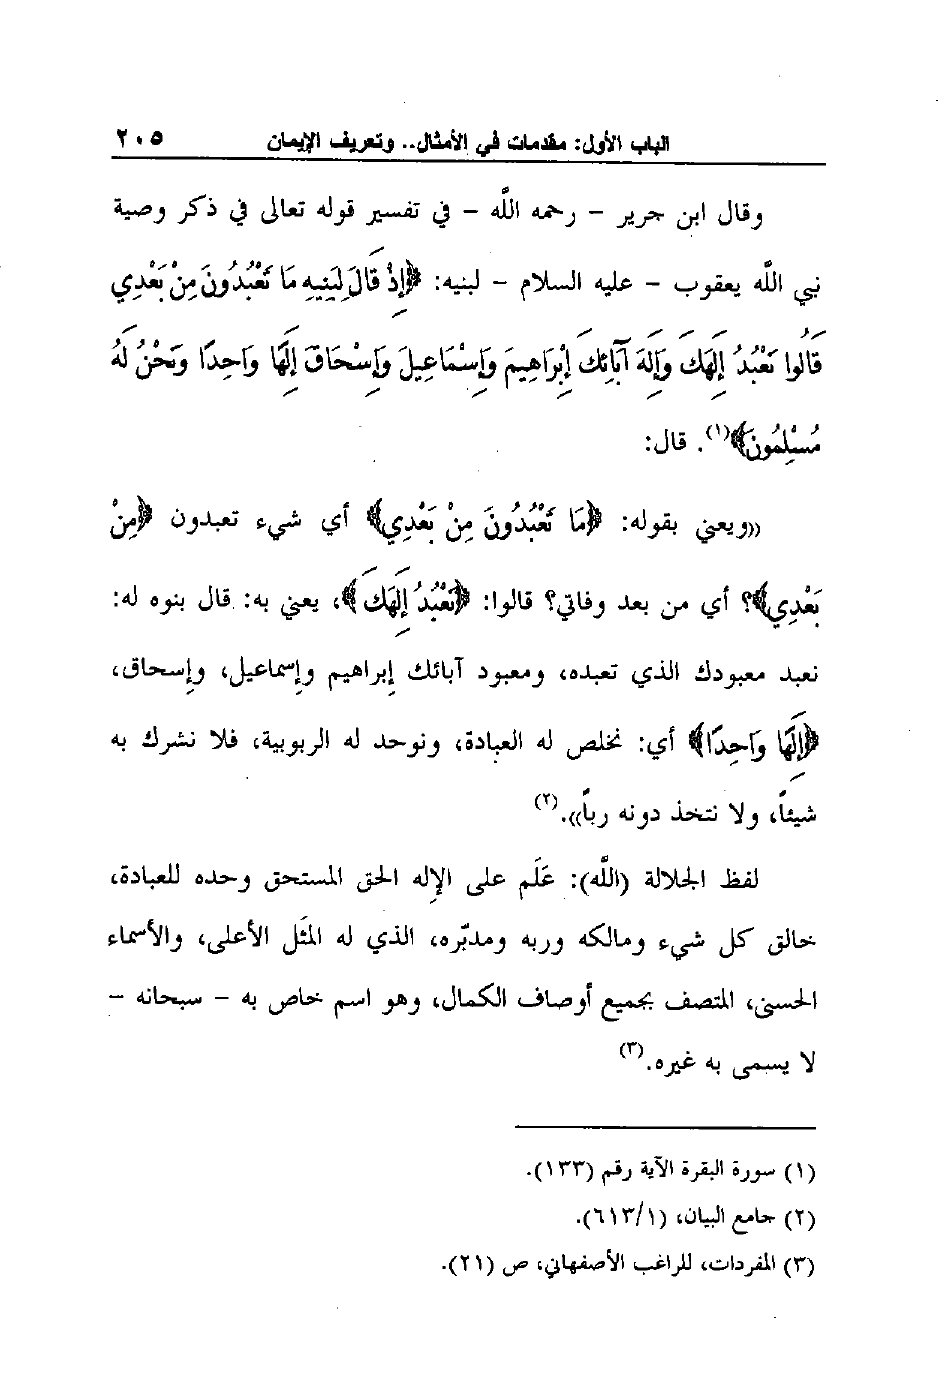 الباب الأول: مقدمات في الأمثال.. وتعريف الإيمان ٢٠٥
وقال ابن جرير – رحمه اللَّه – في تفسير قوله تعالى في ذكر وصية
نبي اللَّه يعقوب – عليه السلام – لبنيه: ﴿إِذْ قَالَ لِبَنِيهِ مَا تَعْبُدُونَ مِنْ بَعْدِي
قَالُوا نَعْبُدُ إِلَهَكَ وَإِلَهَ آبَائِكَ إِبْرَاهِيمَ وَإِسْمَاعِيلَ وَإِسْحَاقَ إِلَهًا وَاحِدًا وَنَحْنُ لَهُ
مُسْلِمُونَ﴾(١). قال:
«ويعني بقوله: ﴿مَا تَعْبُدُونَ مِنْ بَعْدِي﴾ أي شيء تعبدون ﴿مِنْ
بَعْدِي﴾؟ أي من بعد وفاتي؟ قالوا: ﴿نَعْبُدُ إِلَهَكَ﴾، يعني به: قال بنوه له:
نعبد معبودك الذي تعبده، ومعبود آبائك إبراهيم وإسماعيل، وإسحاق،
﴿إِلَهًا وَاحِدًا﴾ أي: نخلص له العبادة، ونوحد له الربوبية، فلا نشرك به
شيئاً، ولا نتخذ دونه رباً».(٢)
لفظ الجلالة (اللَّه): عَلَم على الإله الحق المستحق وحده للعبادة،
خالق كل شيء ومالكه وربه ومدبّره، الذي له المثَل الأعلى، والأسماء
الحسنى، المتصف بجميع أوصاف الكمال، وهو اسم خاص به – سبحانه –
لا يسمى به غيره.(٣)
(١) سورة البقرة الآية رقم (١٣٣).
(٢) جامع البيان، (٦١٣/١).
(٣) المفردات، للراغب الأصفهاني، ص (٢١).